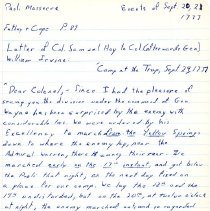 Paoli Massacre Events of Sept. 20, 21
1777
Father + Cope P. 88
Letter of Col. Samuel Hay to Col. (afterwards Gen)
William Irvine.
"Camp at the Trap, Sept 29, 1777
"Dear Colonel, - Since I had the pleasure of
seeing you the division under the command of Gen
Wayne has been surprised by the enemy with
considerable loss. We were ordered by his
Excellency to march from the Yellow Springs
down to where the enemy lay, near the
Admiral Warren, there to annoy their rear. We
marched early on the 17th instant, and got below
the Paoli that night; on the next day fixed
on a place for our camp. We lay the 18th and the
19th undisturbed, but on the 20th, at twelve o'clock
at night, the enemy marched out, and so unguarded